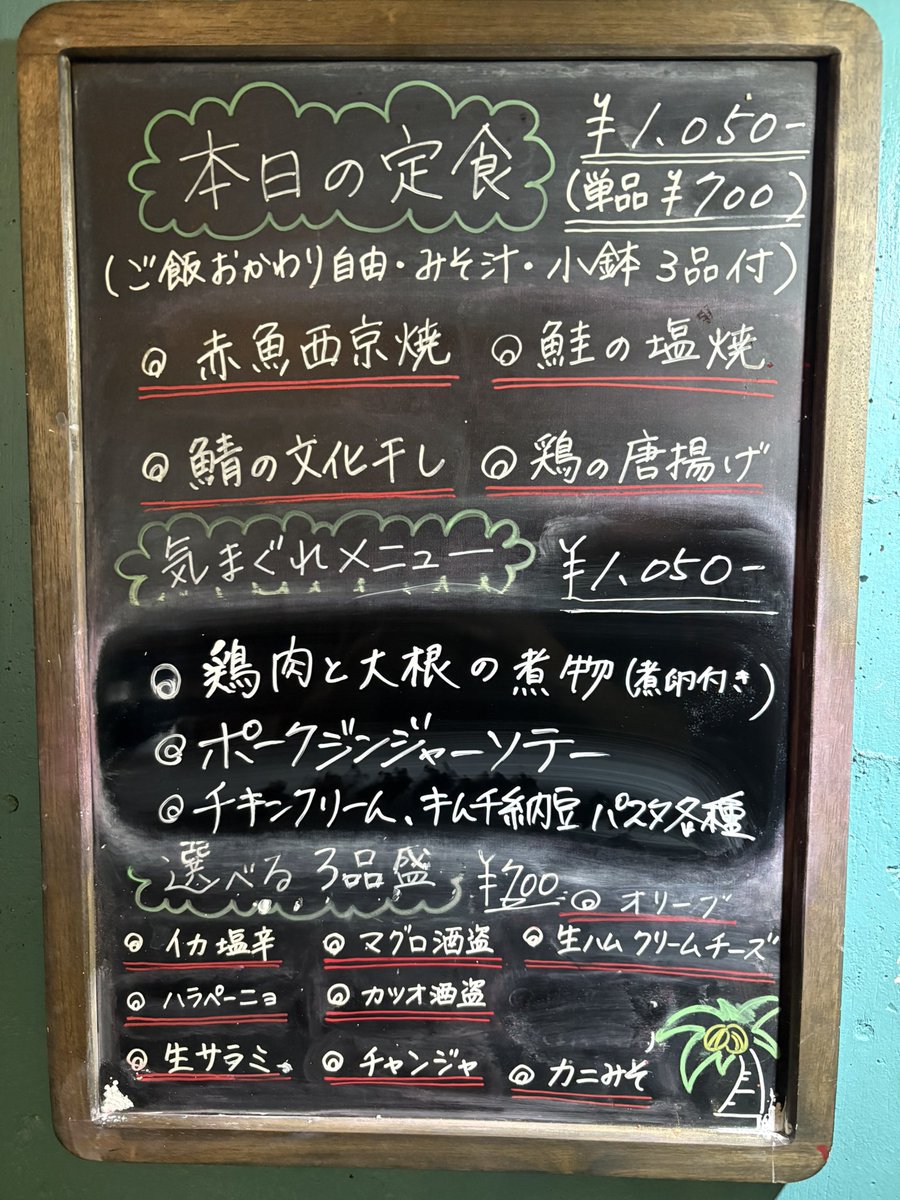 本日の定食 ¥1.050-
(単品¥700)
(ご飯おかわり自由・みそ汁・小鉢3品付)
◎ 赤魚西京焼 ◎ 鮭の塩焼
◎ 鯖の文化干し ◎ 鶏の唐揚げ
気まぐれメニュー ¥1.050-
◎ 鶏肉と大根の煮物(煮卵付き)
◎ ポークジンジャーソテー
◎ チキンクリーム、キムチ納豆 パスタ各種
選べる 3品盛 ¥700-
◎ オリーブ
◎ イカ塩辛 ◎ マグロ酒盗 ◎ 生ハムクリームチーズ
◎ ハラペーニョ ◎ カツオ酒盗
◎ 生サラミ ◎ チャンジャ ◎ カニみそ